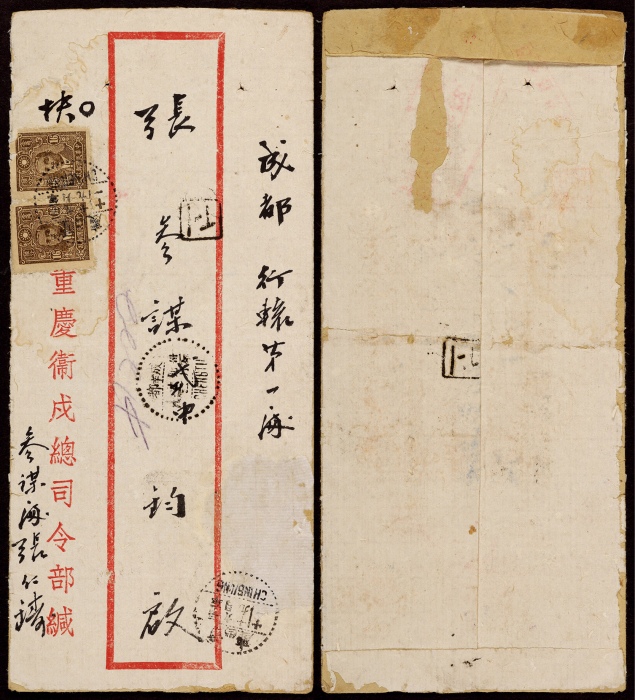 成都 行轅第一處
張參謀鈞啟
快
重慶衞戍總司令部緘
參謀處張仁鑄
CHENGTU
CHUNGKING